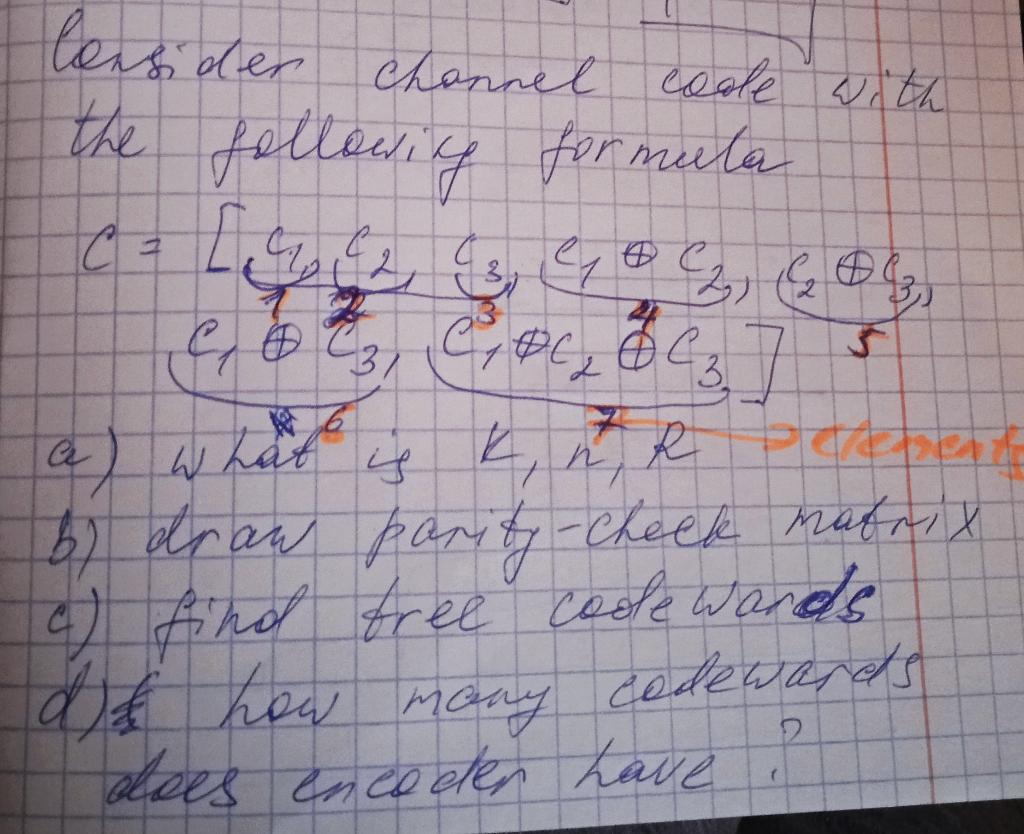 Consider channel code with
the following formula
C = [C₁, C₂, C₃, C₁ ⊕ C₂, C₂ ⊕ C₃,
1 2 3 4 5
C₁ ⊕ C₃, C₁ ⊕ C₂ ⊕ C₃]
6 7 → elements
a) what is K, n, R
b) draw parity-check matrix
c) find free codewards
d) how many codewards
does encoder have?